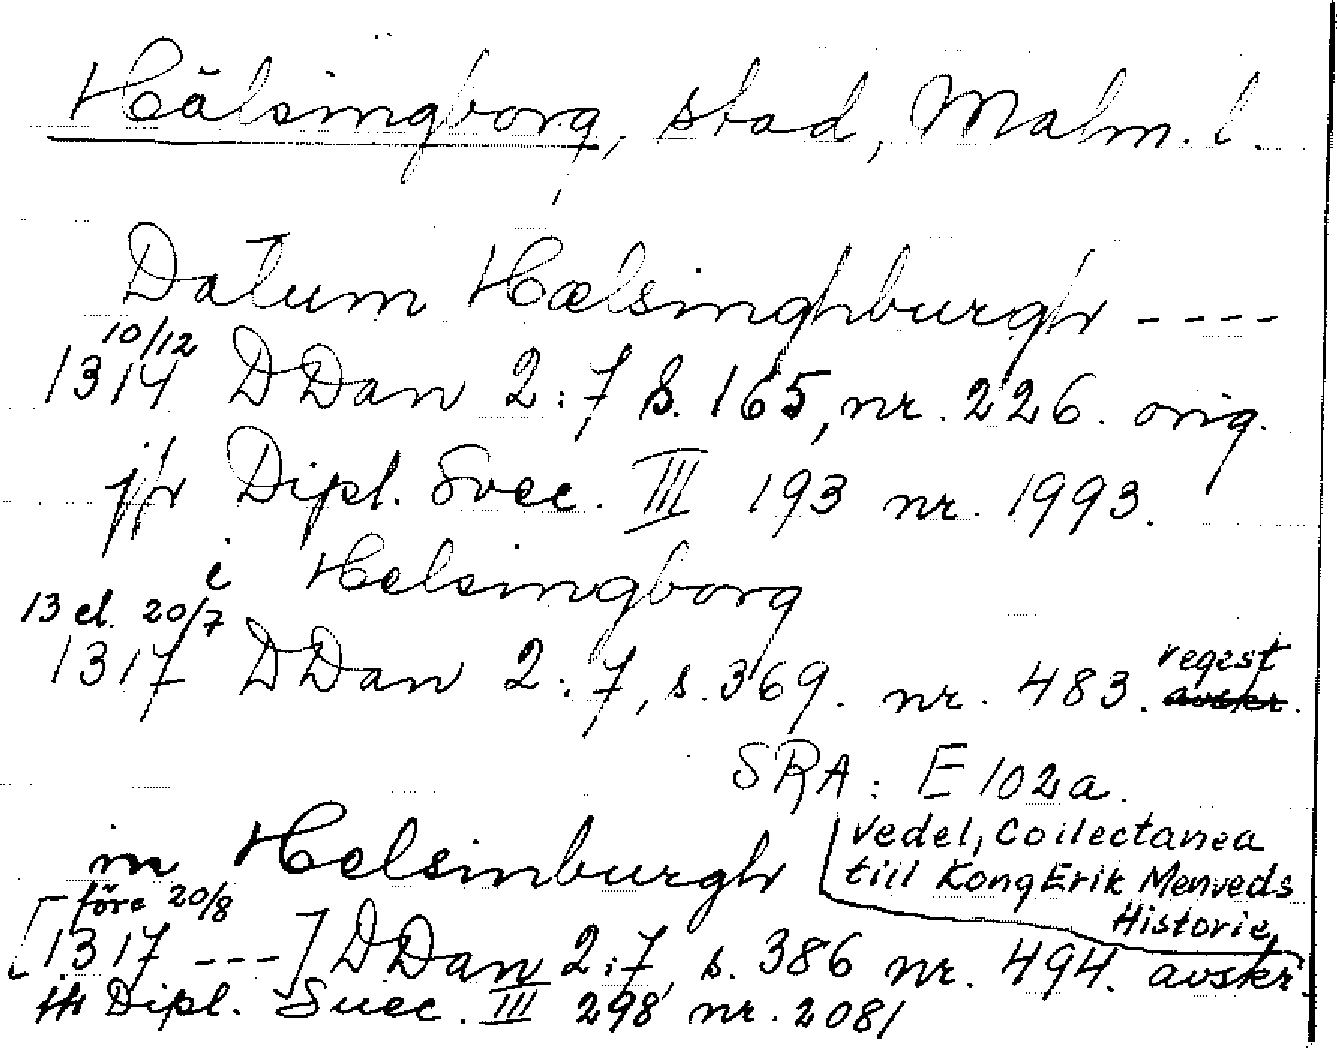 Hälsingborg, stad, Malm. l.
Datum Hælsinghburgh ----
10/12
1314 DDan 2:7 s. 165, nr. 226. orig.
jfr Dipl. Svec. III 193 nr. 1993.
i Helsingborg
13 el. 20/7
1317 DDan 2:7, s. 369. nr. 483. regest avskr.
SRA: E 102a.
Vedel, Collectanea
till Kong Erik Menveds
Historie,
in Helsinburgh
före 20/8
[1317 ---] DDan 2:7, s. 386 nr. 494. avskr.
jfr Dipl. Suec. III 298 nr. 2081